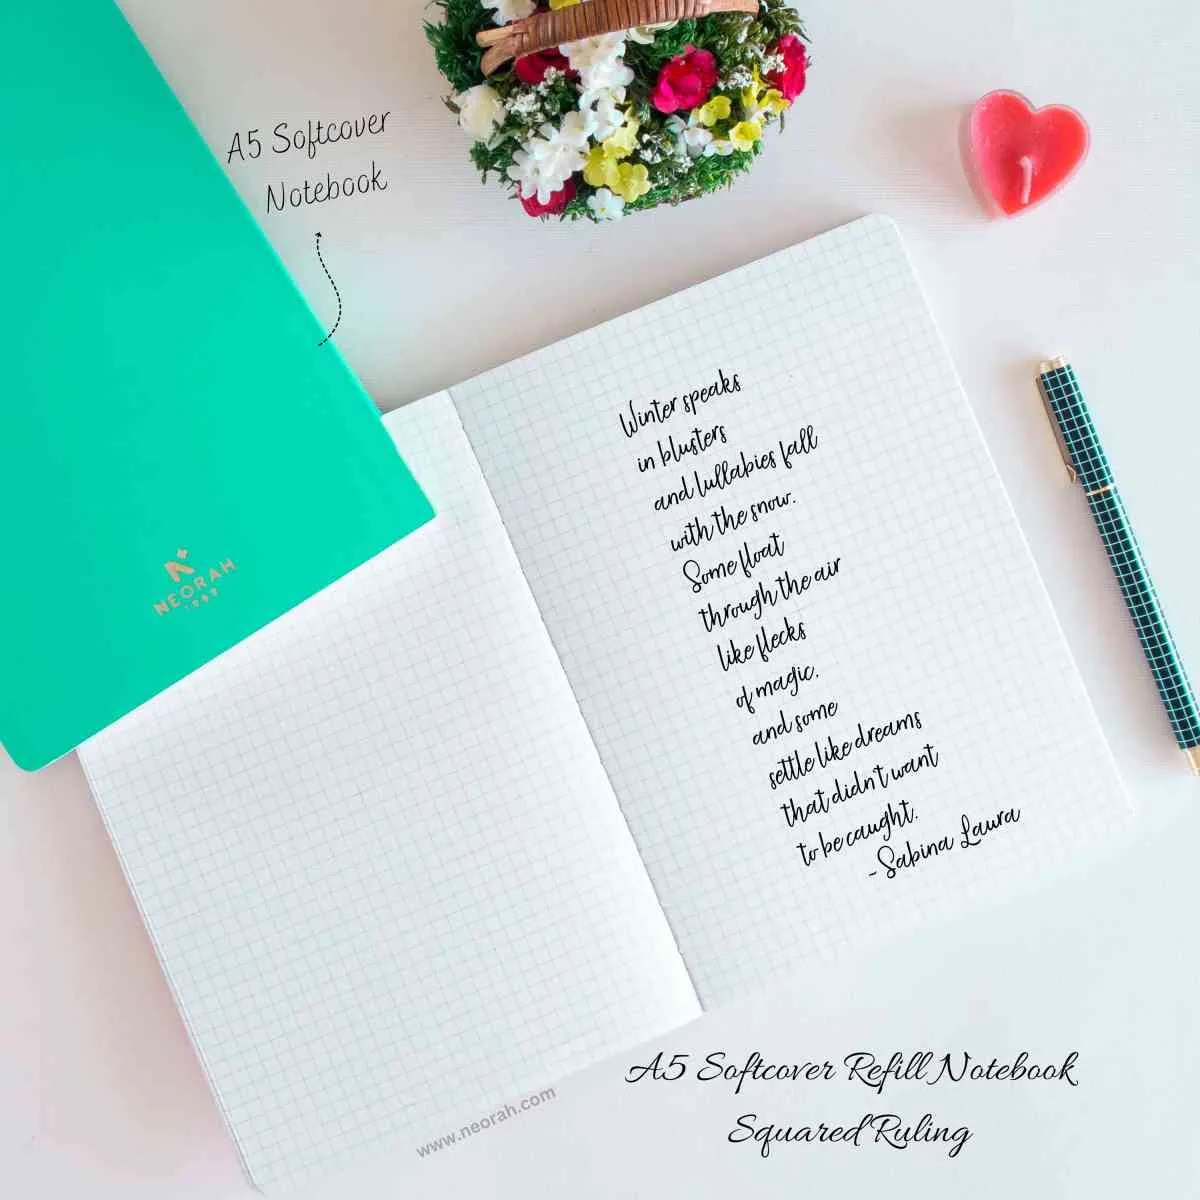 A5 Softcover
Notebook
NEORAH
Winter speaks
in blusters
and lullabies fall
with the snow.
Some float
through the air
like flecks
of magic,
and some
settle like dreams
that didn't want
to be caught.
-Sabina Laura
www.neorah.com
A5 Softcover Refill Notebook
Squared Ruling